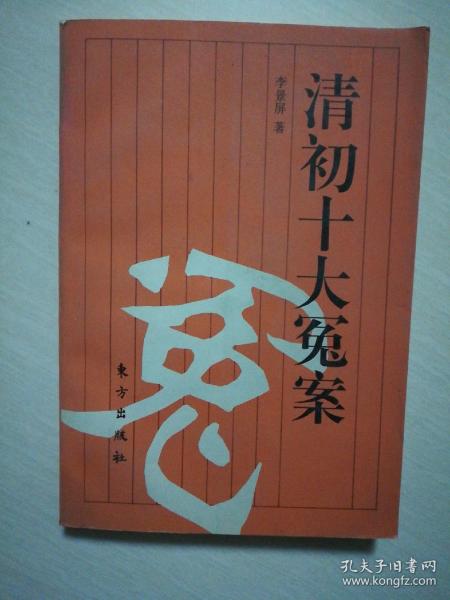 清初十大冤案
李景屏 著
冤
東方出版社
孔夫子旧书网
www.kongfz.com